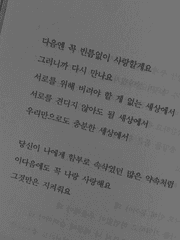 다음엔 꼭 빈틈없이 사랑할게요
그러니까 다시 만나요
서로를 위해 버려야 할 게 없는 세상에서
서로를 견디지 않아도 될 세상에서
우리만으로도 충분한 세상에서
당신이 나에게 함부로 속삭였던 많은 약속처럼
이다음에도 꼭 나랑 사랑해요
그것만은 지켜줘요